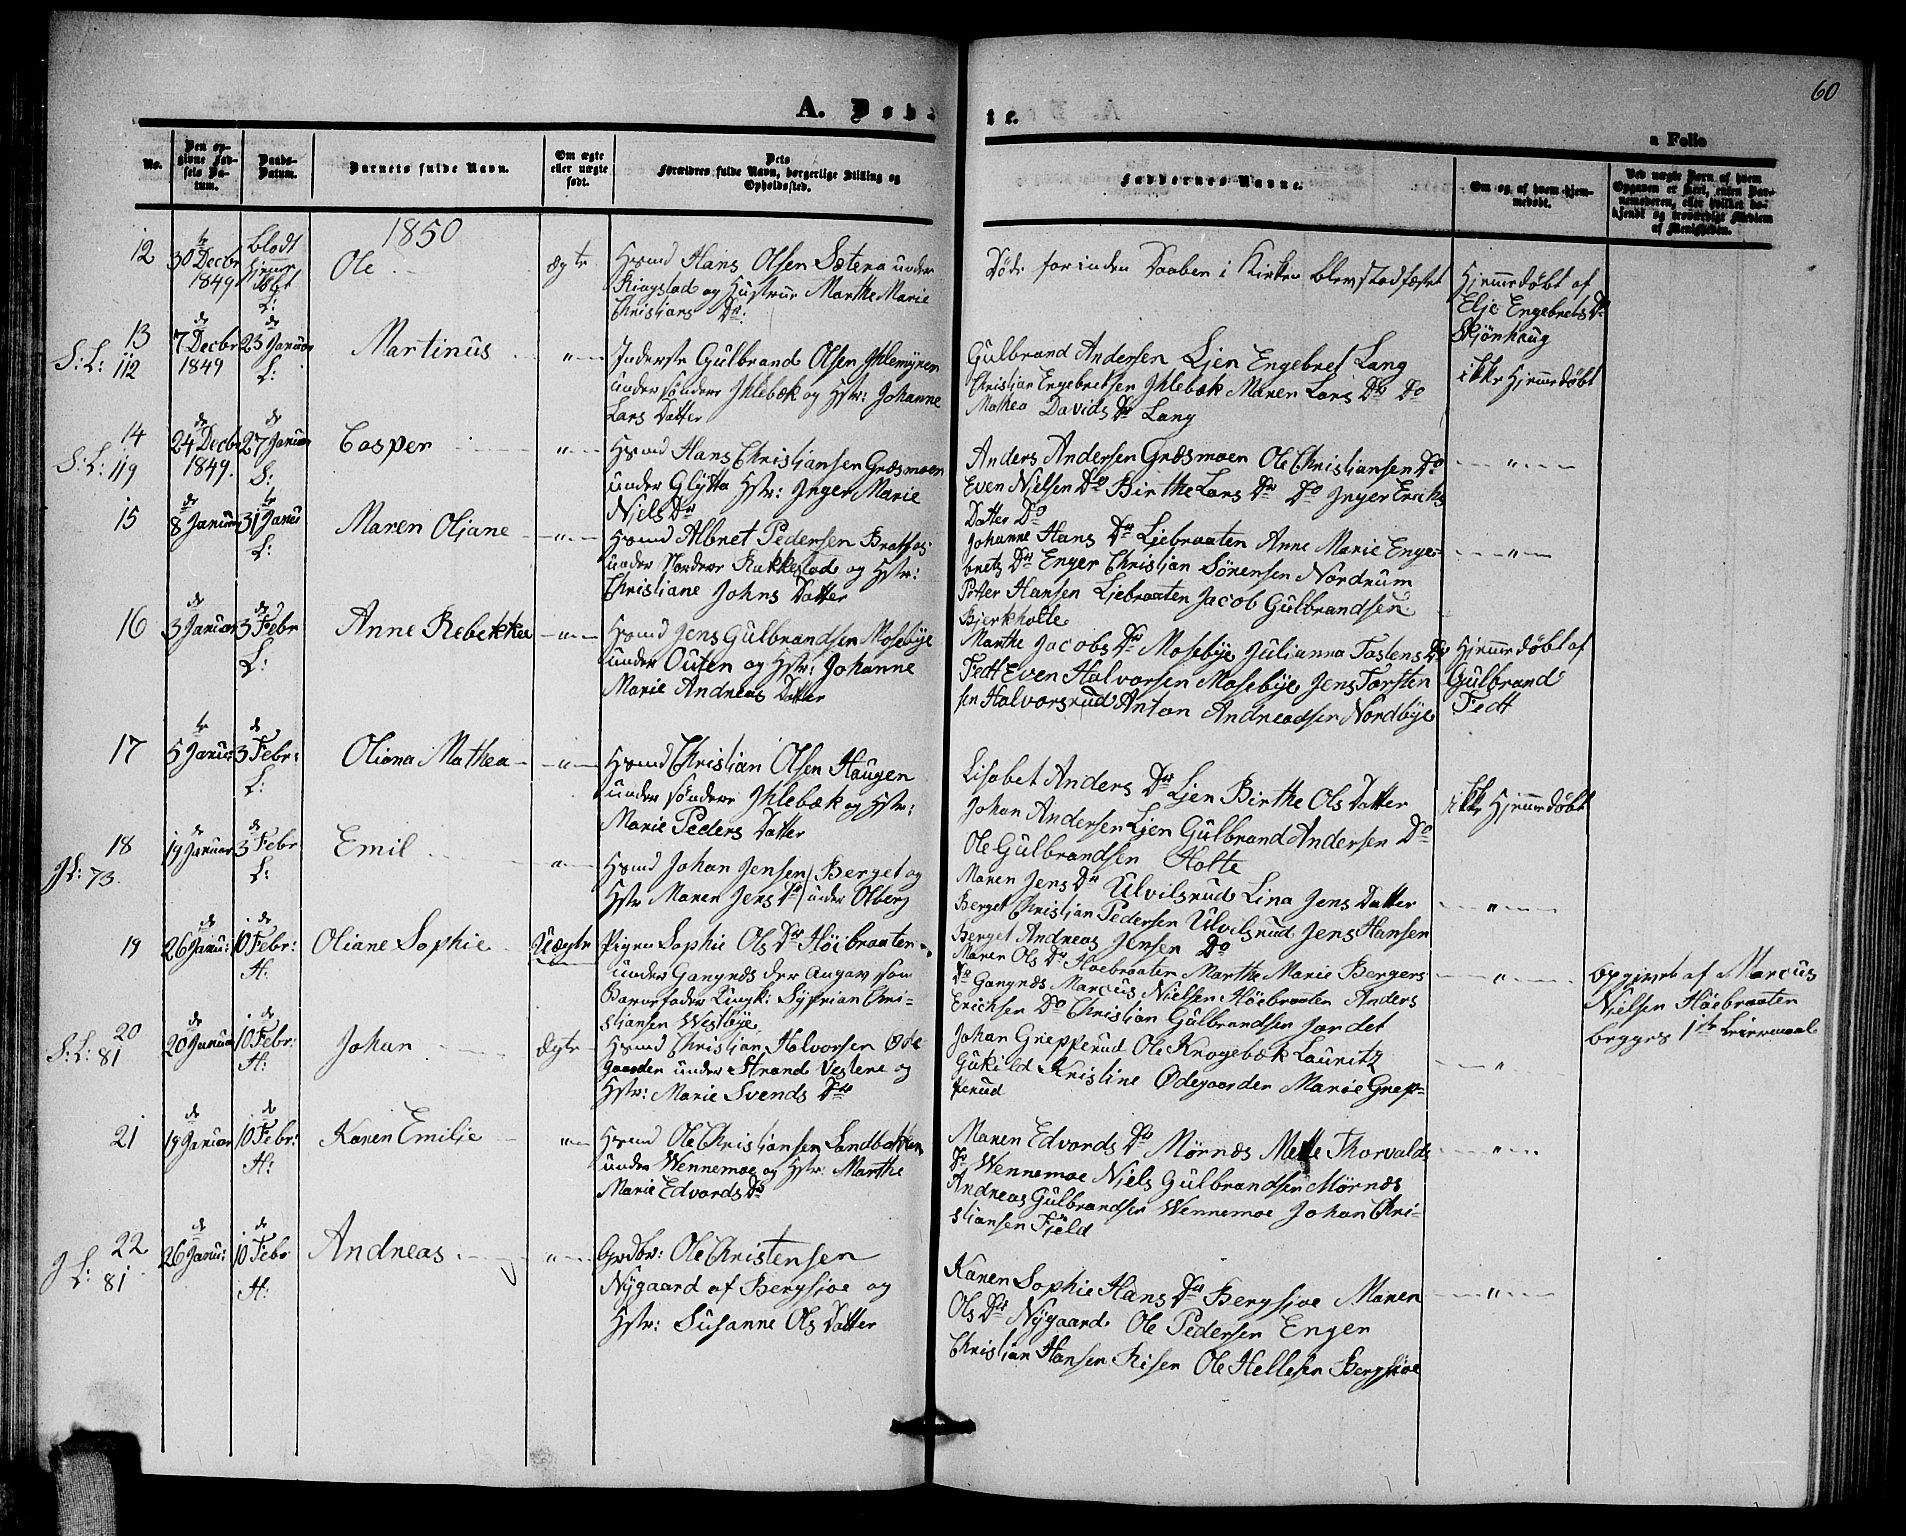 60
A. Døb-
te.
a Folio
No.
Den op-
givne Fød-
sels Da-
tum.
Daabs-
Datum.
Barnets fulde Navn.
Om ægte
eller uægte
født.
Dets
Forældres fulde Navn, borgerlige Stilling og
Opholdssted.
Faddernes Navne.
Om og af hvem hjem-
medøbt.
Ved uægte Børn af hvem
Opgaven er skeet, enten Bar-
nemoderen, eller hvilket be-
kjendt og troværdigt Medlem
af Menigheden.
1850
12
30 Decbr
1849
blodt
hjemme
døbt
L:
Ole
ægte
Hsmd Hans Olsen Sætera under
Ringstad og Hustrue Marthe Marie
Christians Dtr:
Døde forinden Daaben i Kirken blev stadfæstet
Hjemmedøbt af
Elje Engebrets Dr
Skjønhaug
13
S: L: 112
de
7 Decbr
1849
de
23 Januar
L:
Martinus
"
Inderste Gulbrand Olsen Ihlemyren
under søndere Ihlebæk og Hstr: Johanne
Lars Datter
Gulbrand Andersen Ljen Engebret Lang
Christian Engebretsen Ihlebæk Maren Lars Dr Do
Mathea Davids Dr Lang
ikke Hjemmedøbt
14
S: L: 119
de
24 Decbr
1849.
de
27 Januar
S:
Casper
"
Hsmd Hans Christiansen Græsmoen
under Glytta Hstr: Inger Marie
Niels Dr
Anders Andersen Græsmoen Ole Christiansen Do
Even Nielsen Do Birthe Lars Dr Do Inger Erichs
Datter Do
"
15
de
8 Januar
te
31 Janu
L:
Maren Oljane
"
Hsmd Albret Pedersen Bratfos
under Nordere Rakkestad og Hstr:
Christiane Johns Datter
Johanne Hans Dr Ljebraaten Anne Marie Enge-
brets Dr Enger Christian Sørensen Nordrum
Petter Hansen Ljebraaten Jacob Gulbrandsen
Bjerkholte
"
16
de
3 Januar
de
3 Febr
L:
Anne Rebekka
"
Hsmd Jens Gulbrandsen Mosebye
under Outen og Hstr: Johanne
Marie Andreas Datter
Marthe Jacobs Dr Mosebye Julianna Tostens Dr
Fedt Even Halvorsen Mosebye Jens Torsten
sen Halvorsrud Anton Andreasen Nordbye
Hjemmedøbt af
Gulbrand
Fedt
17
te
5 Janu:
de
3 Febr:
L:
Oliana Mathea
"
Hsmd Christian Olsen Haugen
under søndere Ihlebæk og Hstr:
Marie Peders Datter
Lisabet Anders Dr Ljen Birthe Ols Datter
Johan Andersen Ljen Gulbrand Andersen Do
Ole Gulbrandsen Holte
ikke Hjemmedøbt
18
L: 73.
de
19 Januar
de
3 Febr
L:
Emil
"
Hsmd Johan Jensen Berget og
Hstr Maren Jens Dr under Olberg
Maren Jens Dr Ulvilsrud Lina Jens Datter
Berget Christian Pedersen Ulvilsrud Jens Hansen
Berget Andreas Jensen Do
"
19
de
26 Janu:
de
10 Febr:
H:
Oliane Sophie
Uægte
Pigen Sophie Ols Dr Høiebraaten
under Gangnæs der angav som
Barnefader Ungk: Syprian Chri-
stiansen Westbye
Maren Ols Dr Høebraaten Marthe Marie Bergers
Dr Gangnæs Marcus Nielsen Høebraaten Anders
Erichsen Do Christian Gulbrandsen Jordet
"
opgivet af Marcus
Nielsen Høebraaten
begges 1ste Leiermaal
20
S: L: 81
de
20 Januar
de
10 Febr:
H:
Johan
ægte
Hsmd Christian Halvorsen Øde-
gaarden under Strand Vestere og
Hstr: Marie Svends Dtr
Johan Grepperud Ole Krogebæk Lauritz
Gukild Kristine Ødegaarden Marie Grep-
perud
"
21
de
19 Januar
de
10 Febr:
H:
Karen Emilie
"
Hsmd Ole Christiansen Sandbakken
under Wennemoe og Hstr: Marthe
Marie Edvards Dr
Maren Edvards Dr Mørnæs Mette Thorvalds
Dr Wennemoe Niels Gulbrandsen Mørnæs
Andreas Gulbrandsen Wennemoe Johan Chri-
stiansen Fjeld
"
22
L: 81
de
26 Janu:
de
10 Febr
H:
Andreas
"
Grdbr: Ole Christensen
Nygaard af Bergsjøe og
Hstr: Susanne Ols Datter
Karen Sophie Hans Dr Bergsjøe Maren
Ols Dr Nygaard Ole Pedersen Enger
Christian Hansen Risen Ole Hellesen Bergsjøe
"